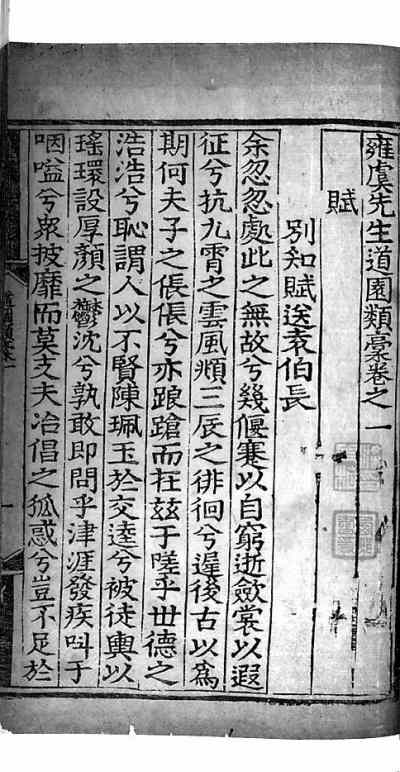 雍虞先生道園類藳卷之一
賦
別知賦送袁伯長
余忽忽處此之無故兮幾偃蹇以自窮逝歛裳以遐
征兮抗九霄之雲風頫三辰之徘徊兮遲後古以為
期何夫子之倀倀兮亦踉蹌而在兹于嗟乎世德之
浩浩兮恥謂人以不賢陳珮玉於交逵兮被徒輿以
瑤環設厚顏之鬱沈兮孰敢即問乎津涯發疾呌于
咽嗌兮衆披靡而莫支夫冶倡之孤惑兮豈不足於